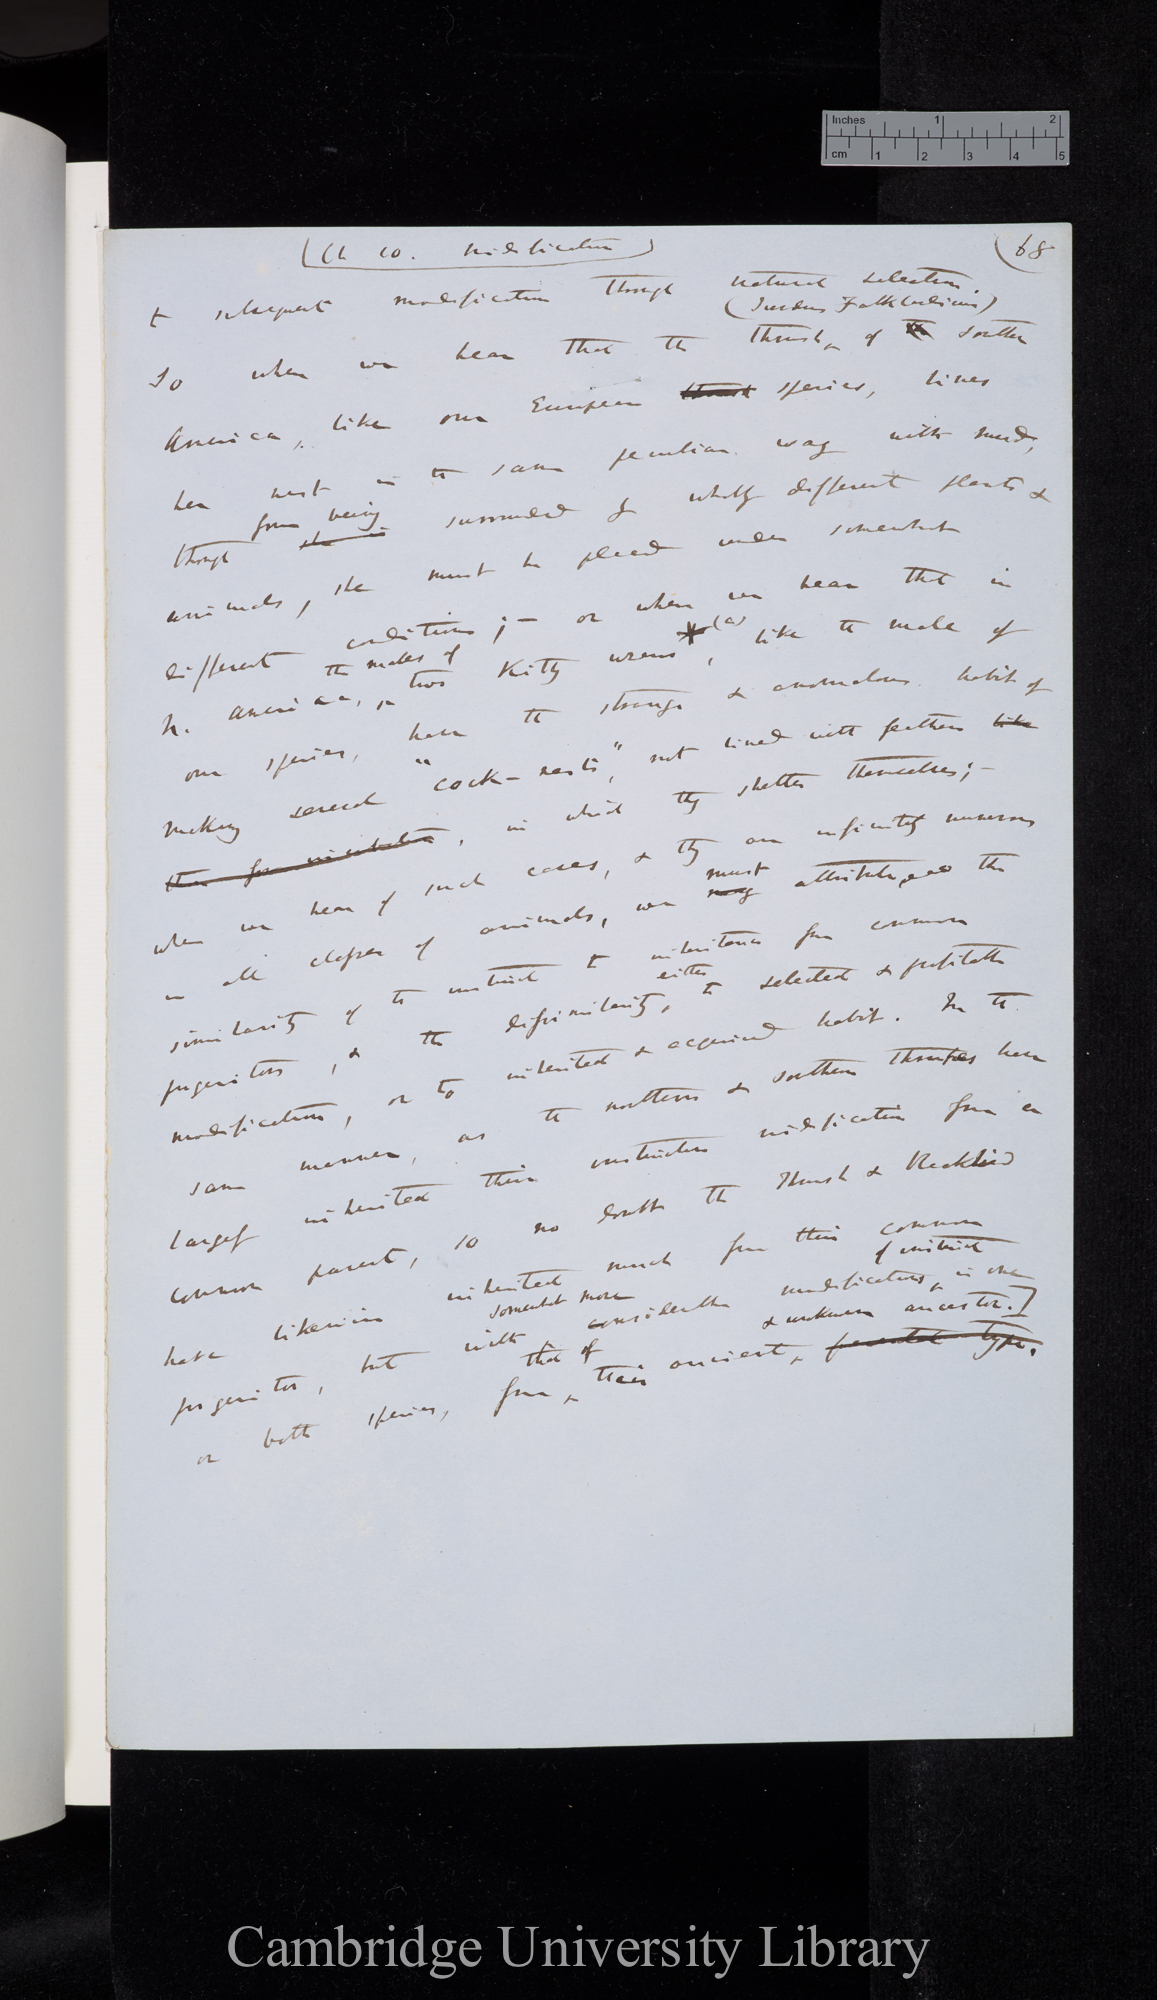 Inches 1 2
cm 1 2 3 4 5
(Ch 10. Nidification) (68
& subsequent modification through natural selection.
(Turdus Falklandicus)
So when we hear that the thrush, of the Southern
America, like our European thrush species, lines
her nest in the same peculiar way with mud,
from being
though she is surrounded by wholly different plants &
animals, she must be placed under somewhat
different conditions;— or when we hear that in
the males of
N. America, two Kitty wrens *(a), like the male of
our species, have the strange & anomalous habit of
making several "cock-nests", not lined with feathers like
those for incubation, in which they shelter themselves;—
when we hear of such cases, & they are infinitely numerous
must
in all classes of animals, we may attribute the
similarity of the instinct to inheritance from common
either
progenitors, & the dissimilarity, to selected & profitable
modification, or to inherited & acquired habit. In the
same manner, as the northern & southern thrushes have
largely inherited their instinctive nidification from a
common parent, so no doubt the Thrush & Blackbird
have likewise inherited much from their common
of instinct
somewhat more
progenitor, but with considerable modification, in one
that of & unknown ancestor.]
or both species, from their ancient, parental type.
Cambridge University Library